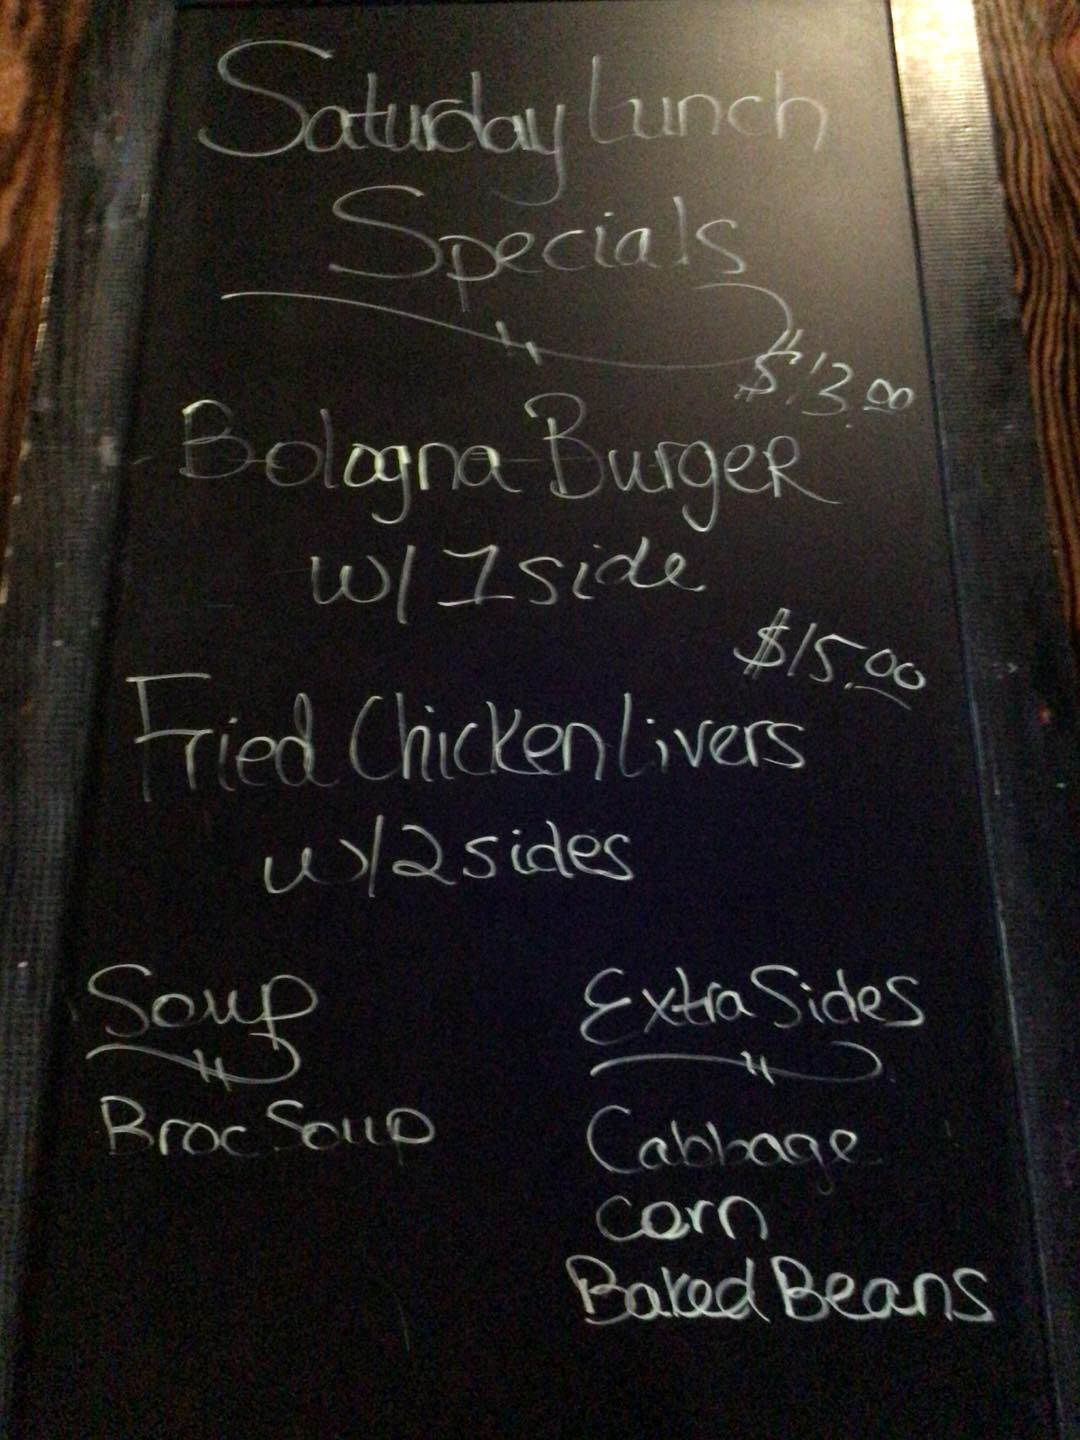 Saturday Lunch
Specials
$13.00
Bologna Burger
w/ 1 side
$15.00
Fried Chicken Livers
w/ 2 sides
Soup
Broc Soup
Extra Sides
Cabbage
Corn
Baked Beans